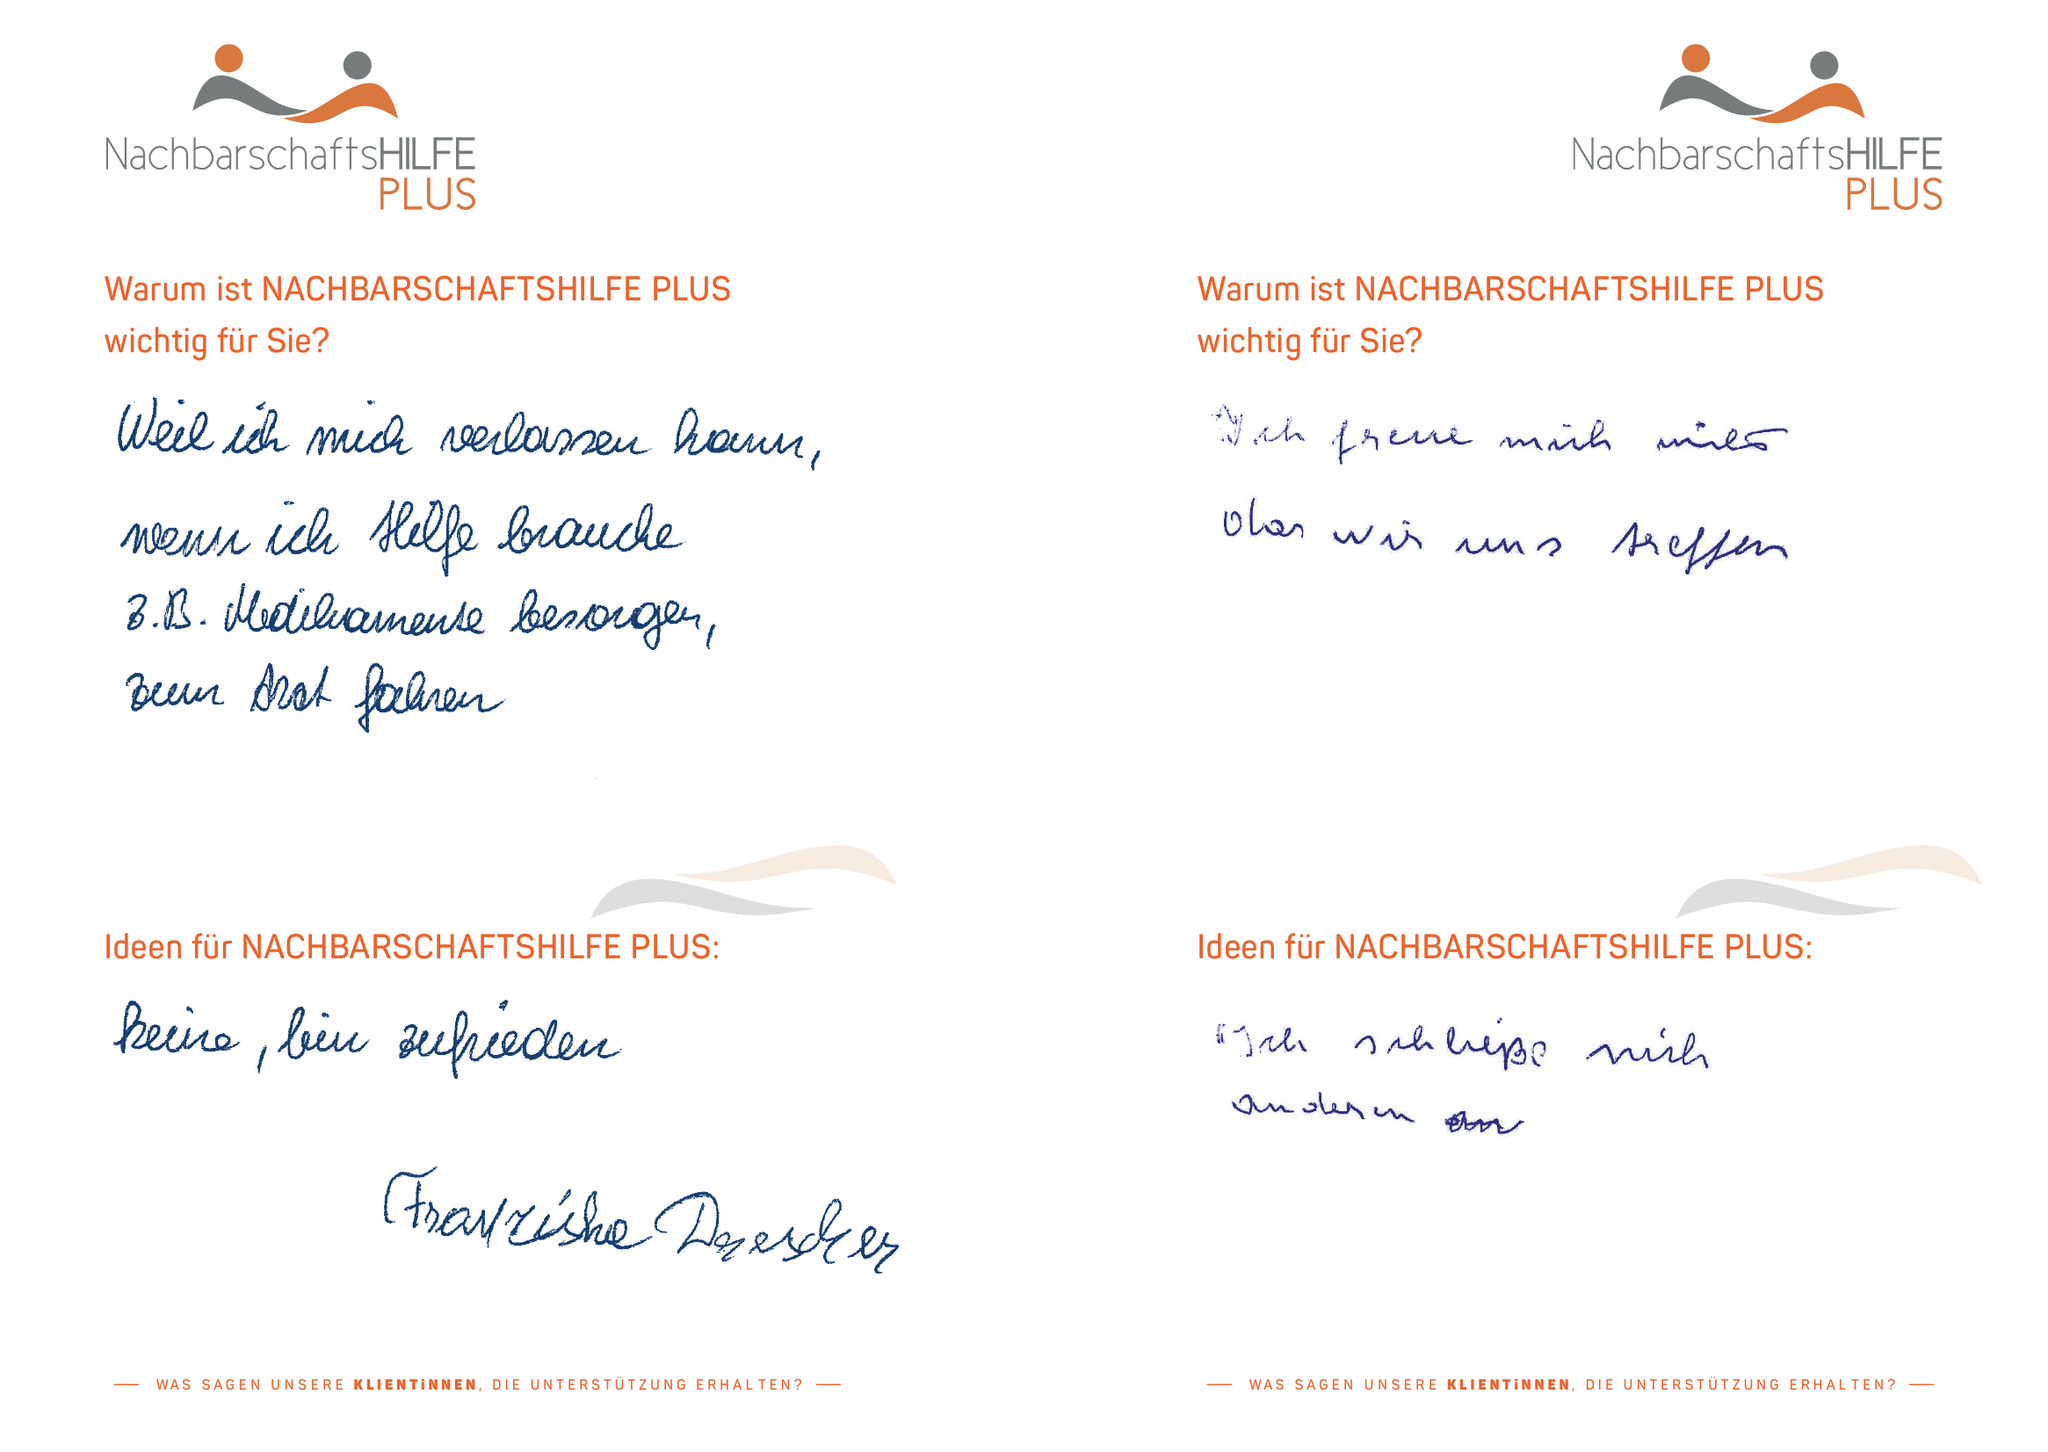 NachbarschaftsHILFE
PLUS
Warum ist NACHBARSCHAFTSHILFE PLUS
wichtig für Sie?
Weil ich mich verlassen kann,
wenn ich Hilfe brauche
z.B. Medikamente besorgen,
zum Arzt fahren
Ideen für NACHBARSCHAFTSHILFE PLUS:
keine, bin zufrieden
Franziska Drescher
— WAS SAGEN UNSERE KLIENTiNNEN, DIE UNTERSTÜTZUNG ERHALTEN? —
NachbarschaftsHILFE
PLUS
Warum ist NACHBARSCHAFTSHILFE PLUS
wichtig für Sie?
Ich freue mich
wir uns treffen
Ideen für NACHBARSCHAFTSHILFE PLUS:
"Ich schließe mich
anderen an
— WAS SAGEN UNSERE KLIENTiNNEN, DIE UNTERSTÜTZUNG ERHALTEN? —